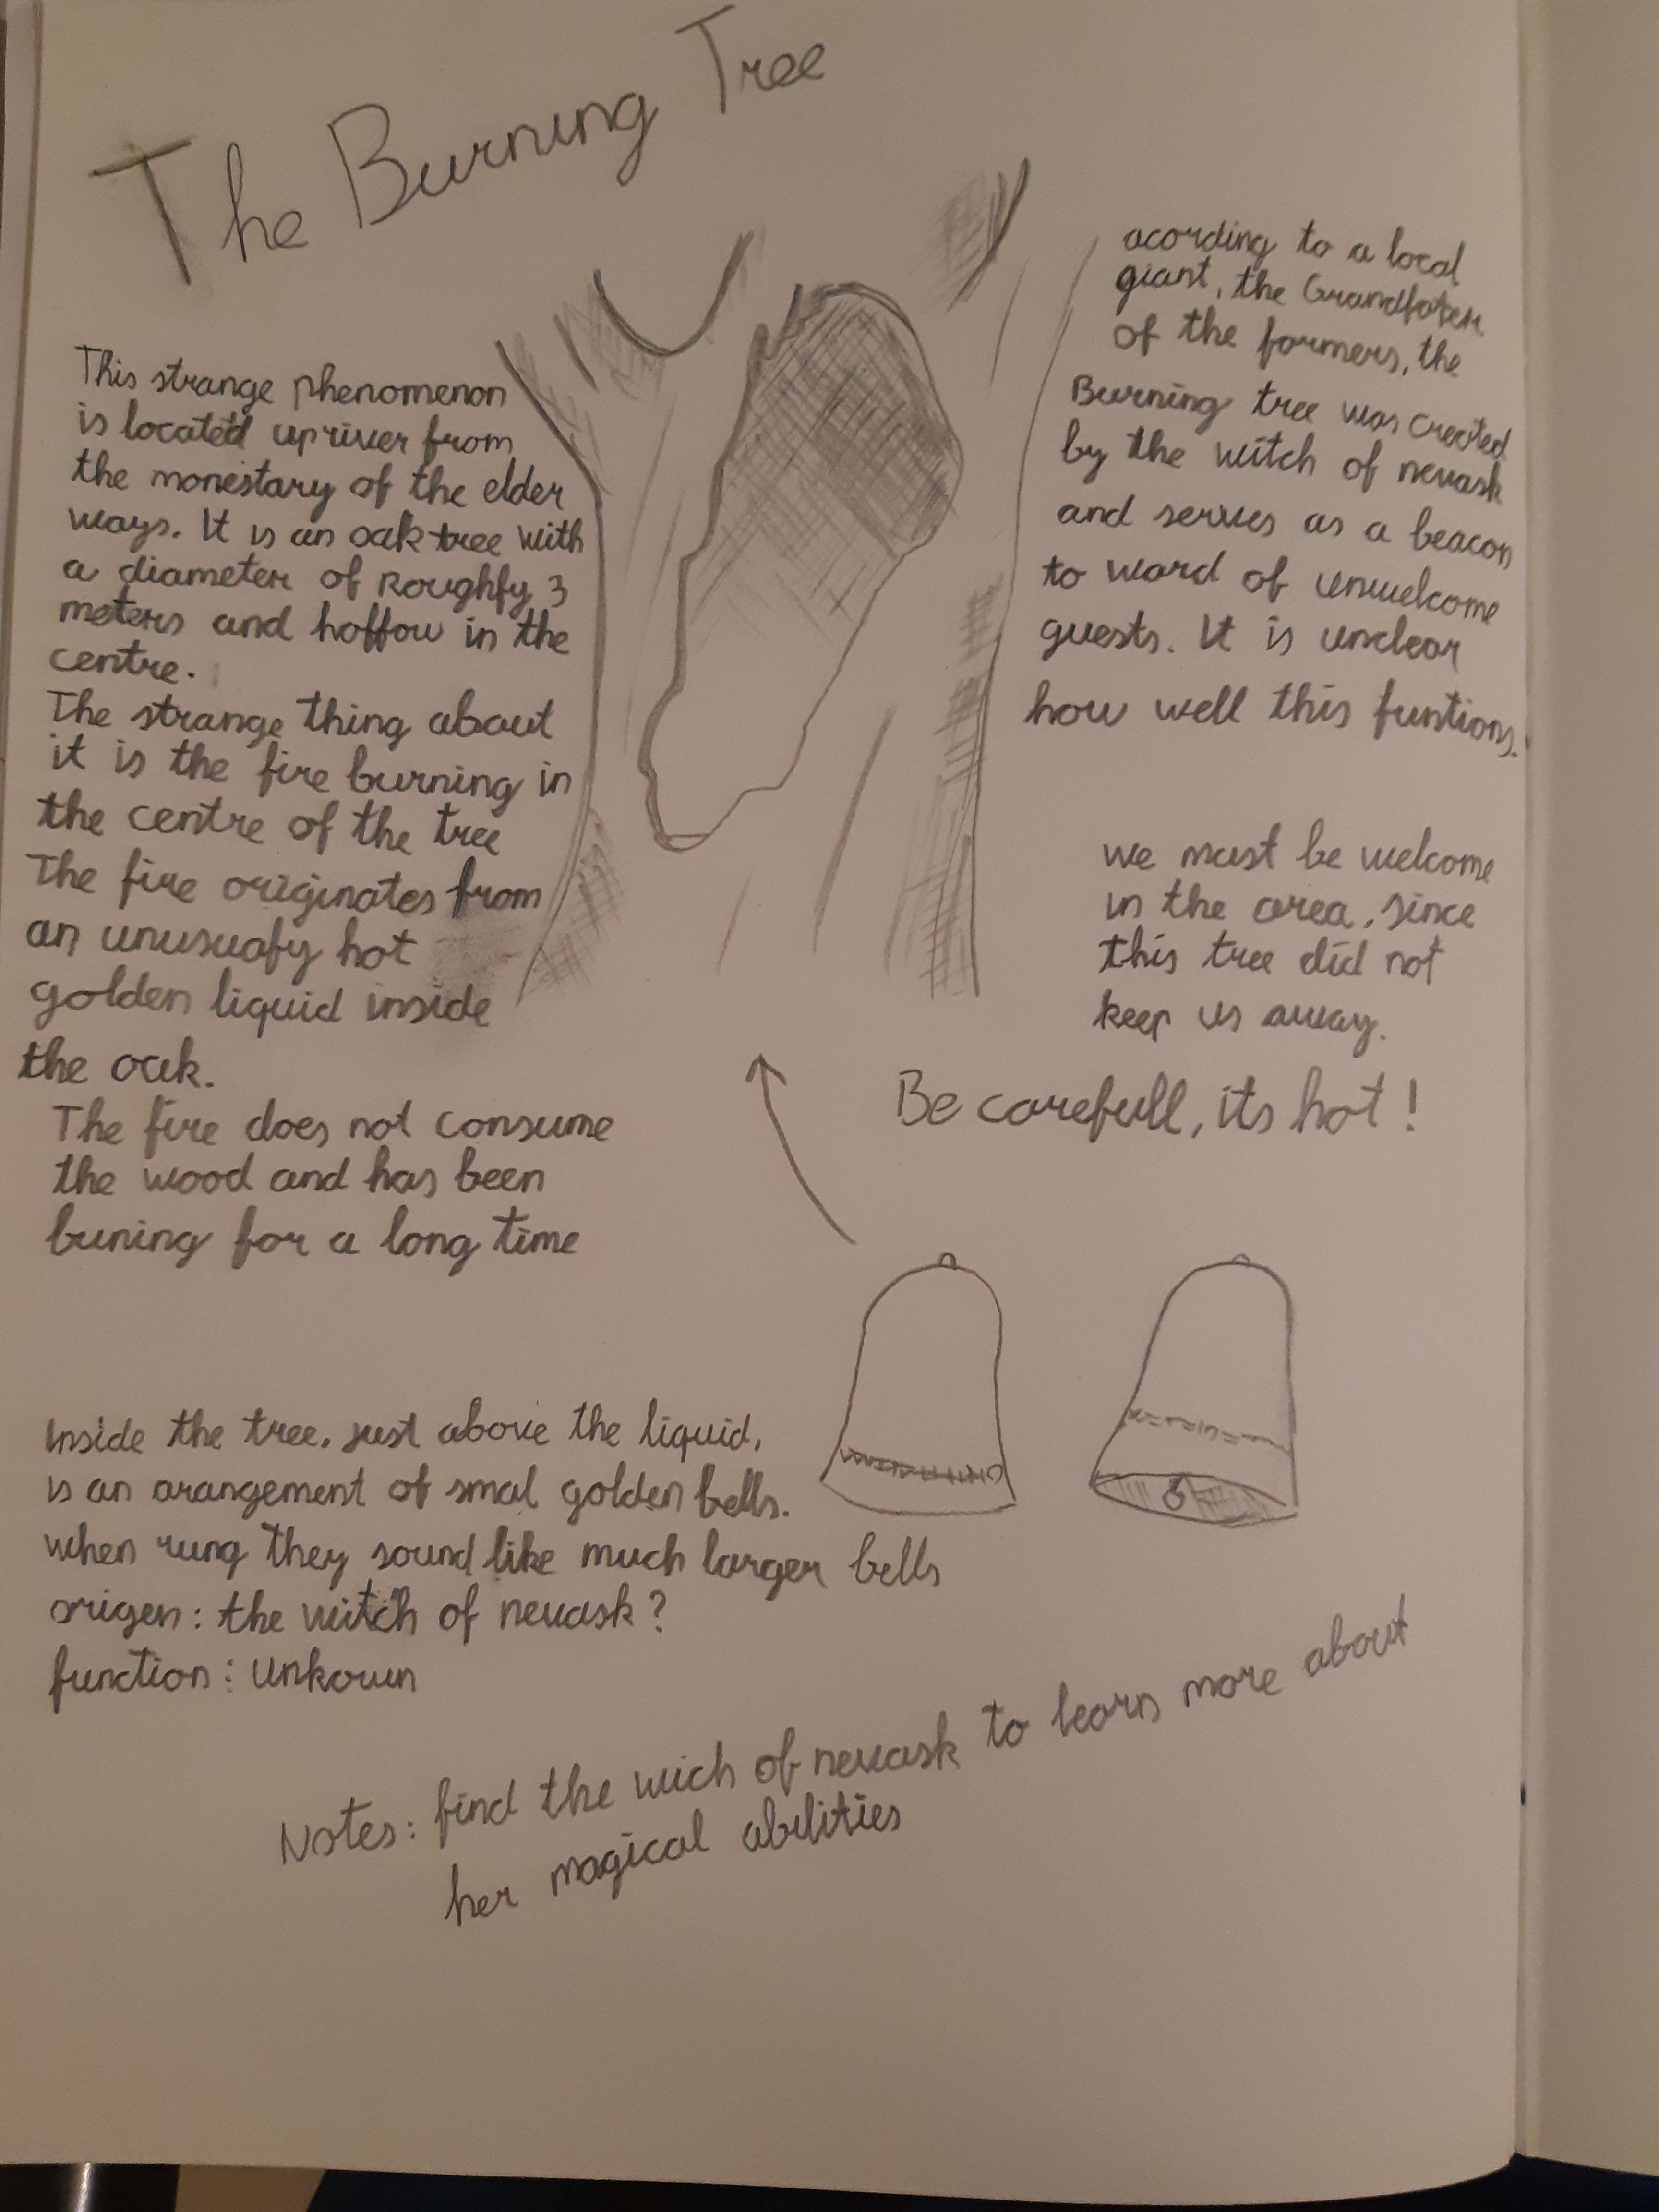 The Burning Tree
This strange phenomenon
is located upriver from
the monestary of the elder
ways. It is an oak tree with
a diameter of Roughly 3
meters and hollow in the
centre.
The strange thing about
it is the fire burning in
the centre of the tree
The fire originates from
an unusualy hot
golden liquid inside
the oak.
The fire does not consume
the wood and has been
buning for a long time
acording to a local
giant, the Grandfater
of the farmers, the
Burning tree was created
by the witch of nevask
and serves as a beacon
to ward of unwelcome
guests. It is unclear
how well this funtions.
we must be welcome
in the area, since
this tree did not
keep us away.
Be carefull, its hot!
Inside the tree, just above the liquid,
is an arangement of smal golden bells.
when rung they sound like much larger bells
origen: the witch of nevask?
function: unkown
Notes: find the wich of nevask to learn more about
her magical abilities